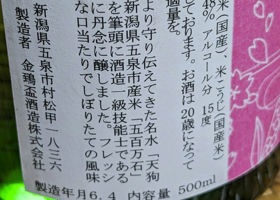 米(国産)、米こうじ(国産米)
48% アルコール分 15度
しております。お酒は20歳になって
適量を。
より守り伝えてきた名水「天狗
新潟県五泉市産米「五百万石
を筆頭に酒造一級技能士である
に丹念に醸しました。フレッシ
な口当たりでしぼりたての風味
新潟県五泉市村松甲一八三六
製造者 金鵄盃酒造株式会社
製造年月6.4 内容量 500ml